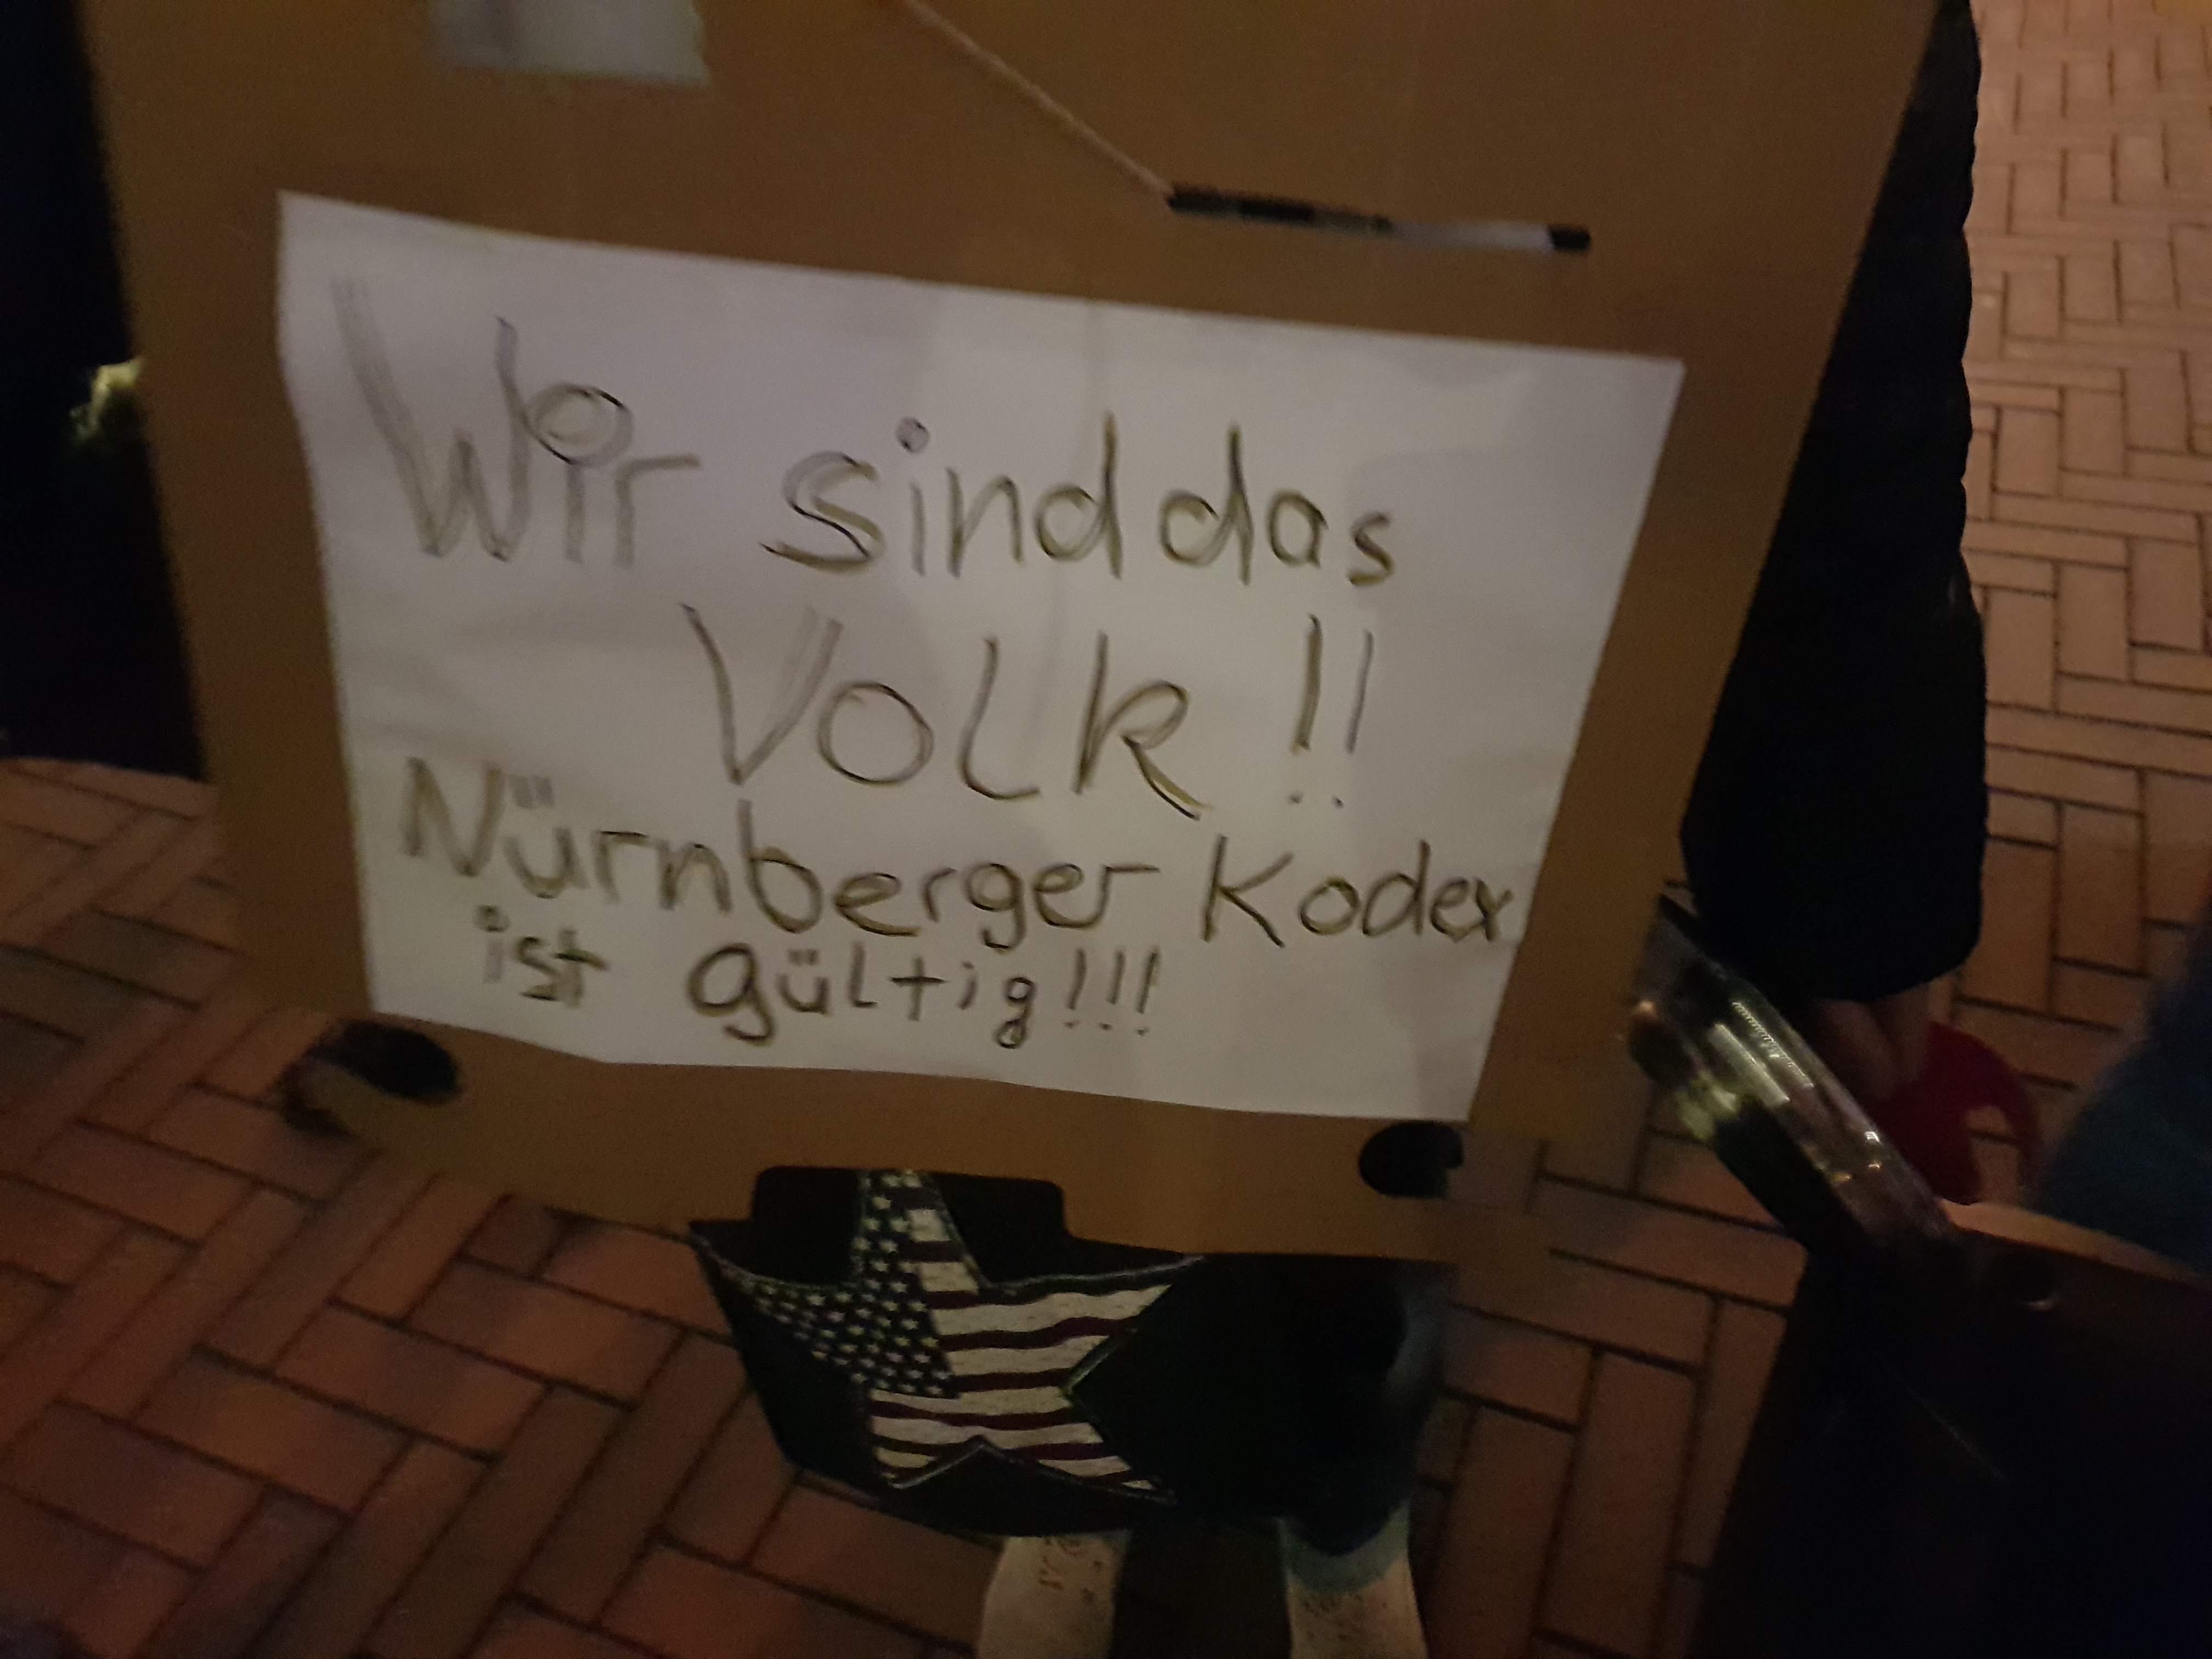 Wir sind das
VOLK !!
Nürnberger Kodex
ist gültig!!!